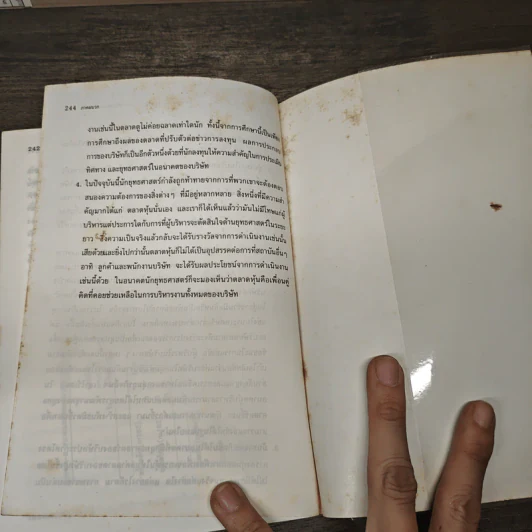 244 ภาคผนวก
งานเช่นนี้ในตลาดดูไม่ค่อยฉลาดเท่าใดนัก ทั้งนี้จากการศึกษานี้เป็นเพียง
การศึกษาถึงผลของตลาดที่ปรับตัวต่อข่าวการลงทุน ผลการประกอบ
การของบริษัทก็เป็นอีกตัวหนึ่งที่นักลงทุนให้ความสำคัญในการประเมิน
ทิศทาง และยุทธศาสตร์ในอนาคตของบริษัท
4. ในปัจจุบันนี้นักยุทธศาสตร์กำลังถูกท้าทายจากการที่พวกเขาจะต้องตอบ
สนองความต้องการของสิ่งต่างๆ ที่มีอยู่หลากหลาย สิ่งหนึ่งที่มีความสำ
คัญมากได้แก่ ตลาดหุ้นนั่นเอง และเราก็ได้เห็นแล้วว่ามันไม่มีโทษแก่ผู้
บริหารแต่ประการใดกับการที่ผู้บริหารจะตัดสินใจด้านยุทธศาสตร์ในระยะ
ยาว ซึ่งความเป็นจริงแล้วกลับจะได้รับรางวัลจากการดำเนินงานเช่นนั้น
เสียด้วยและยิ่งไปกว่านั้นตลาดหุ้นก็ไม่ได้เป็นอุปสรรคต่อการที่สถาบันอื่นๆ
อาทิ ลูกค้าและพนักงานบริษัท จะได้รับผลประโยชน์จากการดำเนินงาน
เช่นนี้ด้วย ในอนาคตนักยุทธศาสตร์ก็จะมองเห็นว่าตลาดหุ้นคือเพื่อนคู่
คิดที่คอยช่วยเหลือในการบริหารงานทั้งหมดของบริษัท
242